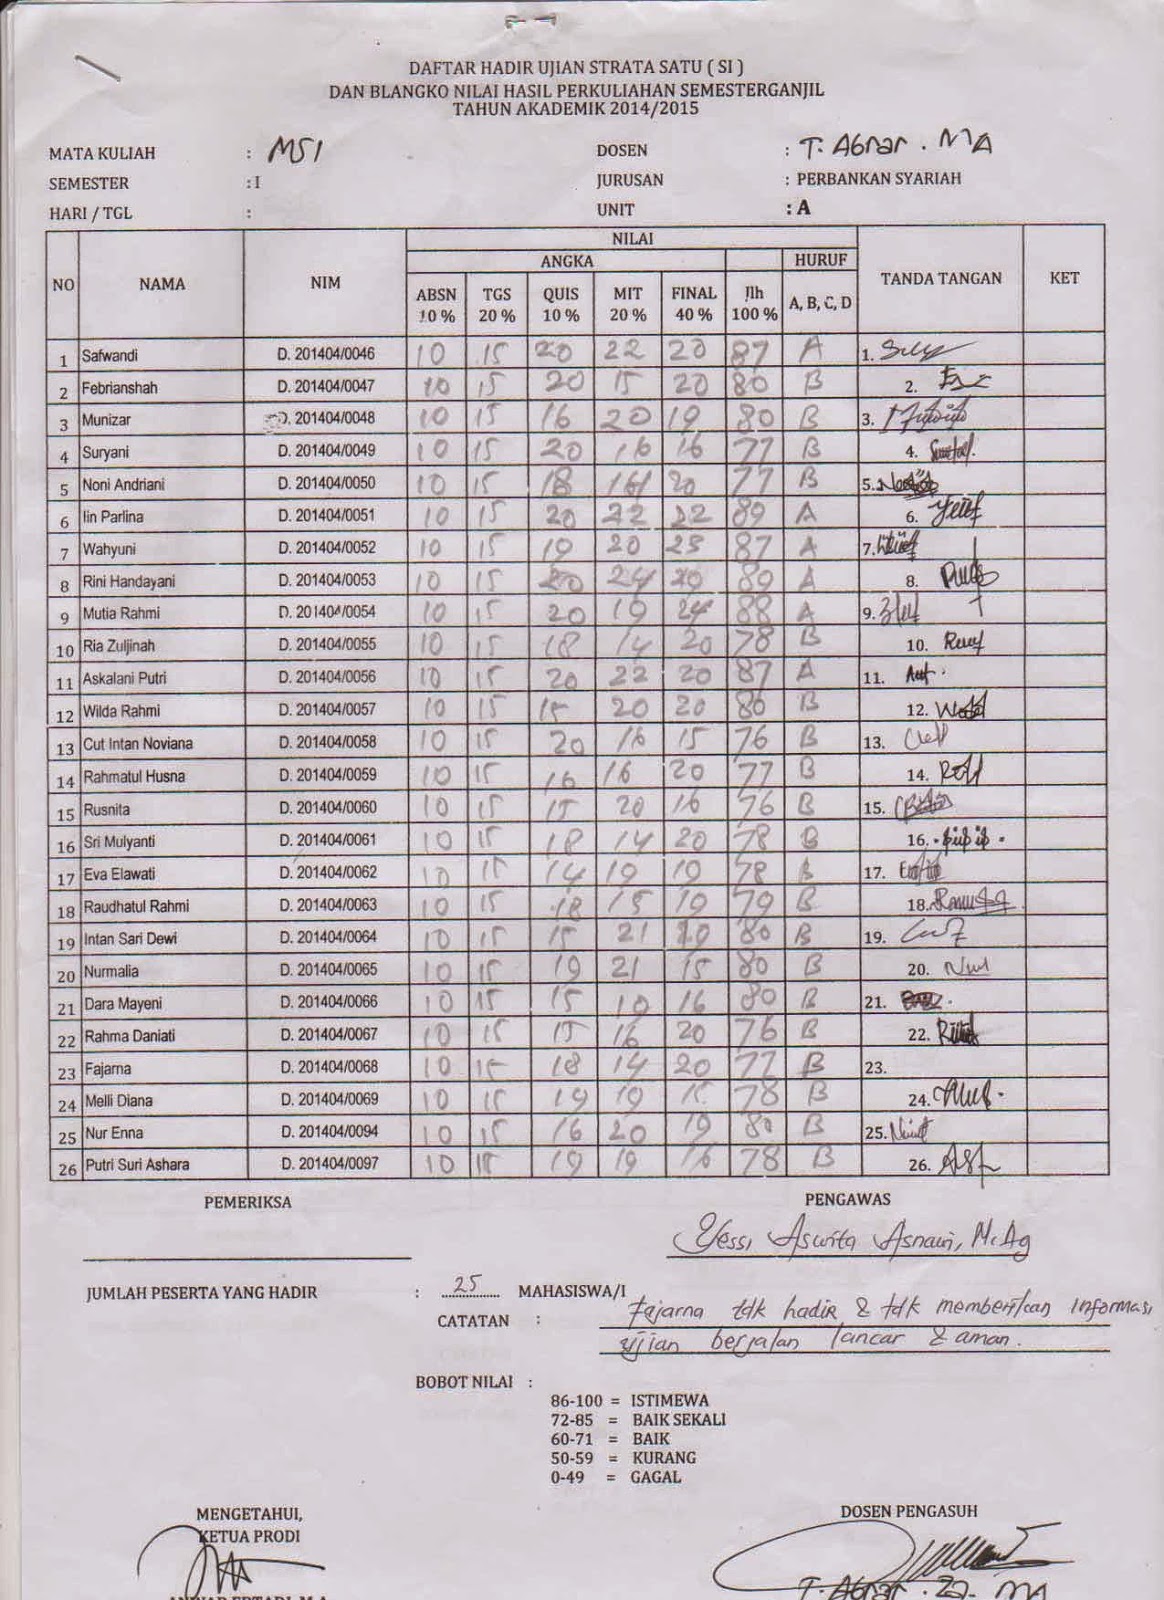 DAFTAR HADIR UJIAN STRATA SATU ( SI )
DAN BLANGKO NILAI HASIL PERKULIAHAN SEMESTERGANJIL
TAHUN AKADEMIK 2014/2015
MATA KULIAH : MSI DOSEN : T. Abrar . MA
SEMESTER : I JURUSAN : PERBANKAN SYARIAH
HARI / TGL : UNIT : A
NILAI
ANGKA HURUF
NO NAMA NIM TANDA TANGAN KET
ABSN TGS QUIS MIT FINAL Jlh A, B, C, D
10 % 20 % 10 % 20 % 40 % 100 %
1 Safwandi D. 201404/0046 10 15 20 22 20 87 A 1.
2 Febrianshah D. 201404/0047 10 15 20 15 20 80 B 2.
3 Munizar D. 201404/0048 10 15 16 20 19 80 B 3.
4 Suryani D. 201404/0049 10 15 20 16 16 77 B 4.
5 Noni Andriani D. 201404/0050 10 15 18 20 77 B 5.
6 Iin Parlina D. 201404/0051 10 15 20 22 22 89 A 6.
7 Wahyuni D. 201404/0052 10 15 19 20 23 87 A 7.
8 Rini Handayani D. 201404/0053 10 15 20 24 20 89 A 8.
9 Mutia Rahmi D. 201404/0054 10 15 20 19 24 88 A 9.
10 Ria Zuljinah D. 201404/0055 10 15 18 14 20 78 B 10.
11 Askalani Putri D. 201404/0056 10 15 20 22 20 87 A 11.
12 Wilda Rahmi D. 201404/0057 10 15 15 20 20 80 B 12.
13 Cut Intan Noviana D. 201404/0058 10 15 20 16 15 76 B 13.
14 Rahmatul Husna D. 201404/0059 10 15 16 16 20 77 B 14.
15 Rusnita D. 201404/0060 10 15 15 20 16 76 B 15.
16 Sri Mulyanti D. 201404/0061 10 15 18 14 20 78 B 16.
17 Eva Elawati D. 201404/0062 10 15 14 19 19 78 B 17.
18 Raudhatul Rahmi D. 201404/0063 10 15 18 15 19 79 B 18.
19 Intan Sari Dewi D. 201404/0064 10 15 15 21 80 B 19.
20 Nurmalia D. 201404/0065 10 15 19 21 15 80 B 20.
21 Dara Mayeni D. 201404/0066 10 15 15 19 16 80 B 21.
22 Rahma Daniati D. 201404/0067 10 15 15 16 20 76 B 22.
23 Fajarna D. 201404/0068 10 15 18 14 20 77 B 23.
24 Melli Diana D. 201404/0069 10 15 19 19 15 78 B 24.
25 Nur Enna D. 201404/0094 10 15 16 20 19 80 B 25.
26 Putri Suri Ashara D. 201404/0097 10 15 19 19 16 78 B 26.
PEMERIKSA PENGAWAS
Yessi Aswita Asnawi, M.Ag
JUMLAH PESERTA YANG HADIR : 25 MAHASISWA/I
CATATAN : Fajarna tdk hadir & tdk memberikan informasi,
ujian berjalan lancar & aman.
BOBOT NILAI :
86-100 = ISTIMEWA
72-85 = BAIK SEKALI
60-71 = BAIK
50-59 = KURANG
0-49 = GAGAL
MENGETAHUI, DOSEN PENGASUH
KETUA PRODI
T. Abrar . MA